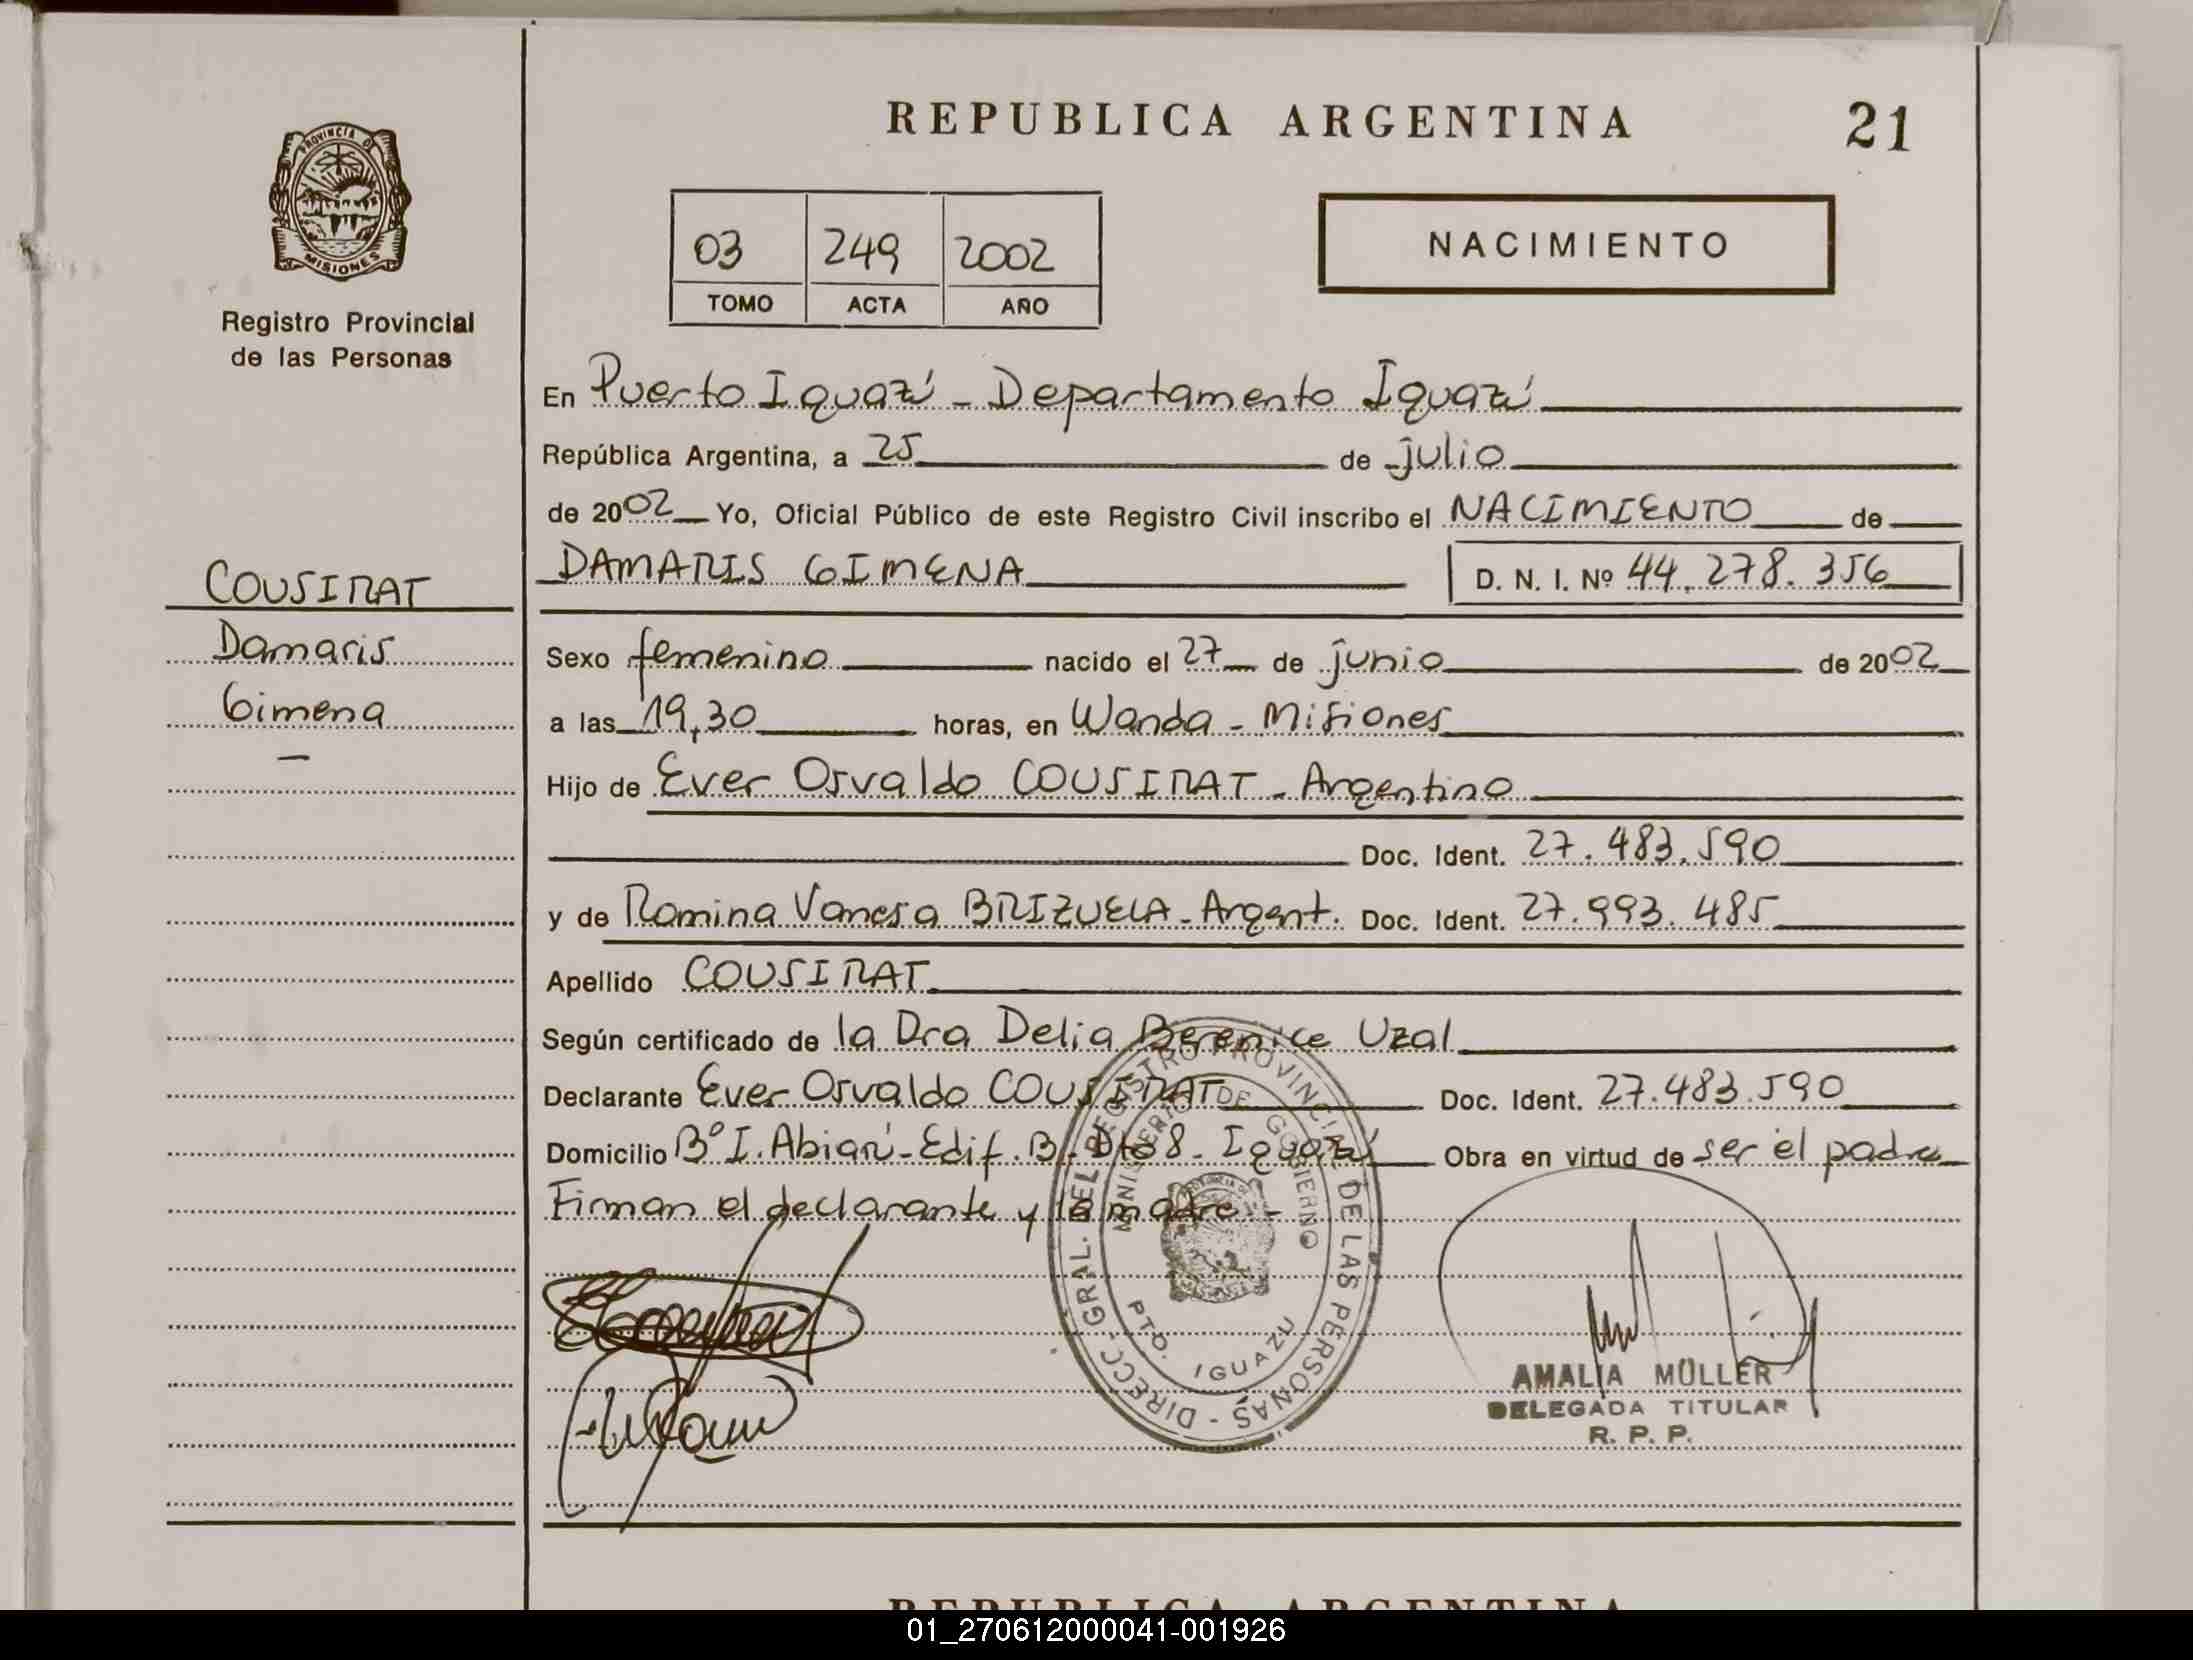 REPUBLICA ARGENTINA
21
PROVINCIA DE
MISIONES
Registro Provincial
de las Personas
03 249 2002
TOMO ACTA AÑO
NACIMIENTO
En Puerto Iguazú - Departamento Iguazú
República Argentina, a 25 de julio
de 2002 Yo, Oficial Público de este Registro Civil inscribo el NACIMIENTO de
DAMARIS GIMENA D. N. I. Nº 44.278.356
COUSIRAT
Damaris
Gimena
Sexo femenino nacido el 27 de junio de 2002
a las 19,30 horas, en Wanda - Misiones
Hijo de Ever Osvaldo COUSIRAT - Argentino
Doc. Ident. 27.483.590
y de Romina Vanesa BRIZUELA - Argent. Doc. Ident. 27.993.485
Apellido COUSIRAT
Según certificado de la Dra Delia Berenice Uzal
Declarante Ever Osvaldo COUSIRAT Doc. Ident. 27.483.590
Domicilio Bº I. Abiarú - Edif. B - Dto 8 - Iguazú Obra en virtud de ser el padre
Firman el declarante y la madre -
DIRECC. GRAL. DEL REGISTRO PROVINCIAL DE LAS PERSONAS -
MINISTERIO DE GOBIERNO
PTO. IGUAZU
AMALIA MÜLLER
DELEGADA TITULAR
R. P. P.
REPUBLICA ARGENTINA
01_270612000041-001926